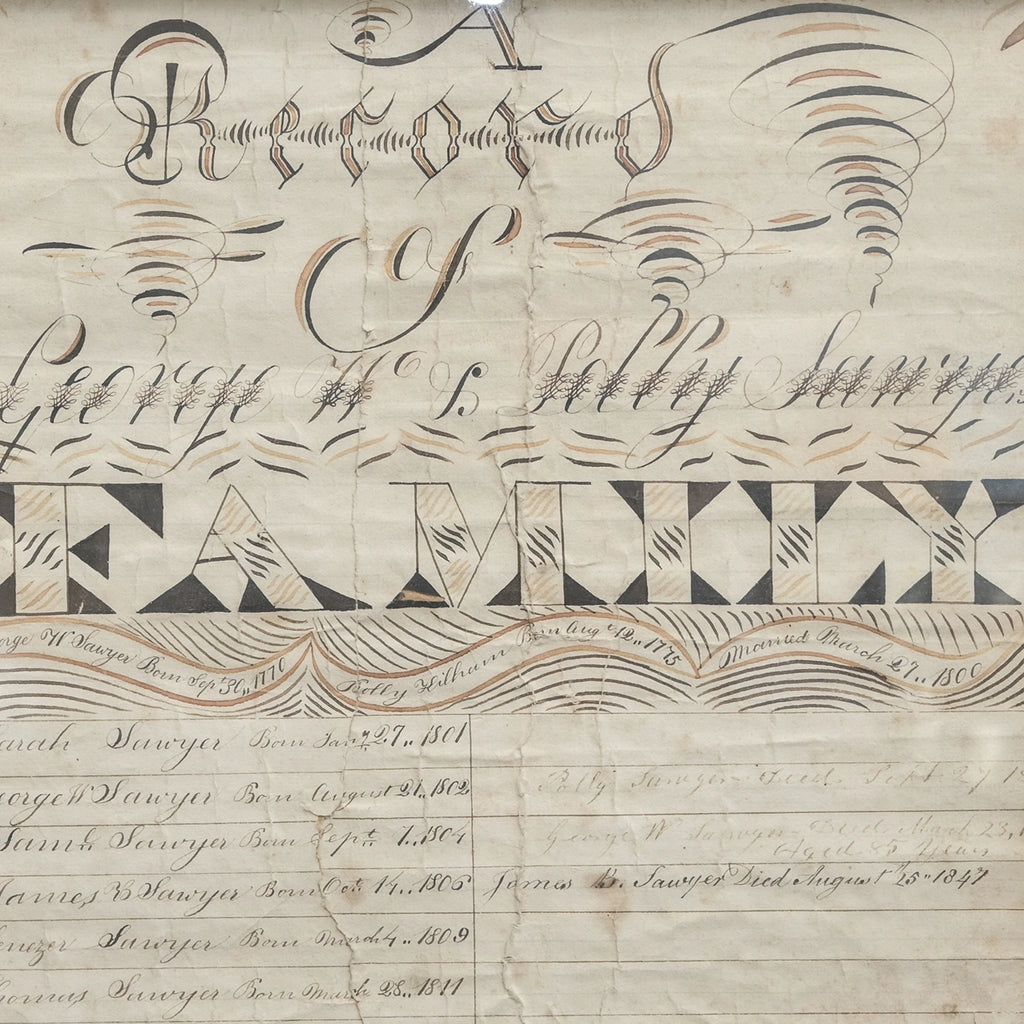 A
Record
of
George W. & Polly Sawyers
FAMILY
orge W Sawyer Born Sept 30,, 1770 Polly Kilham Born Augt 12,, 1775 Married March 27,, 1800
arah Sawyer Born Jany 27,, 1801
eorge W Sawyer Born August 21,, 1802 Polly Sawyer Died Sept 27
Saml. Sawyer Born Sept. 7,, 1804 George W Sawyer Died March 23,
Aged 85 Years
James B Sawyer Born Oct. 14,, 1806 James B. Sawyer Died August 25" 1847
enezer Sawyer Born March 4,, 1809
homas Sawyer Born March 28,, 1811